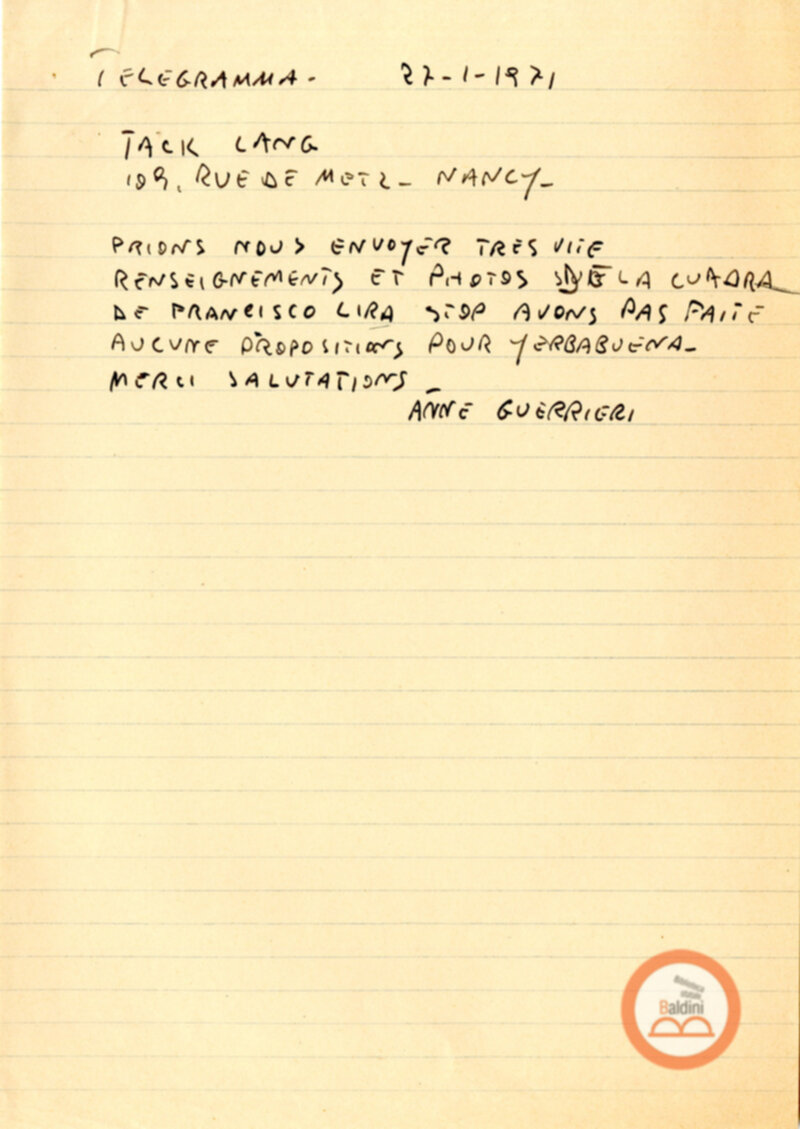 TELEGRAMMA - 27-1-1971
JACK LANG
109, RUE DE METZ - NANCY -
PRIONS NOUS ENVOYER TRES VITE
RENSEIGNEMENTS ET PHOTOS LA CUADRA
DE FRANCISCO LIRA STOP AVONS PAS FAITE
AUCUNE PROPOSITIONS POUR YERBABUENA -
MERCI SALUTATIONS -
ANNE GUERRIERI
Biblioteca
statale
Baldini